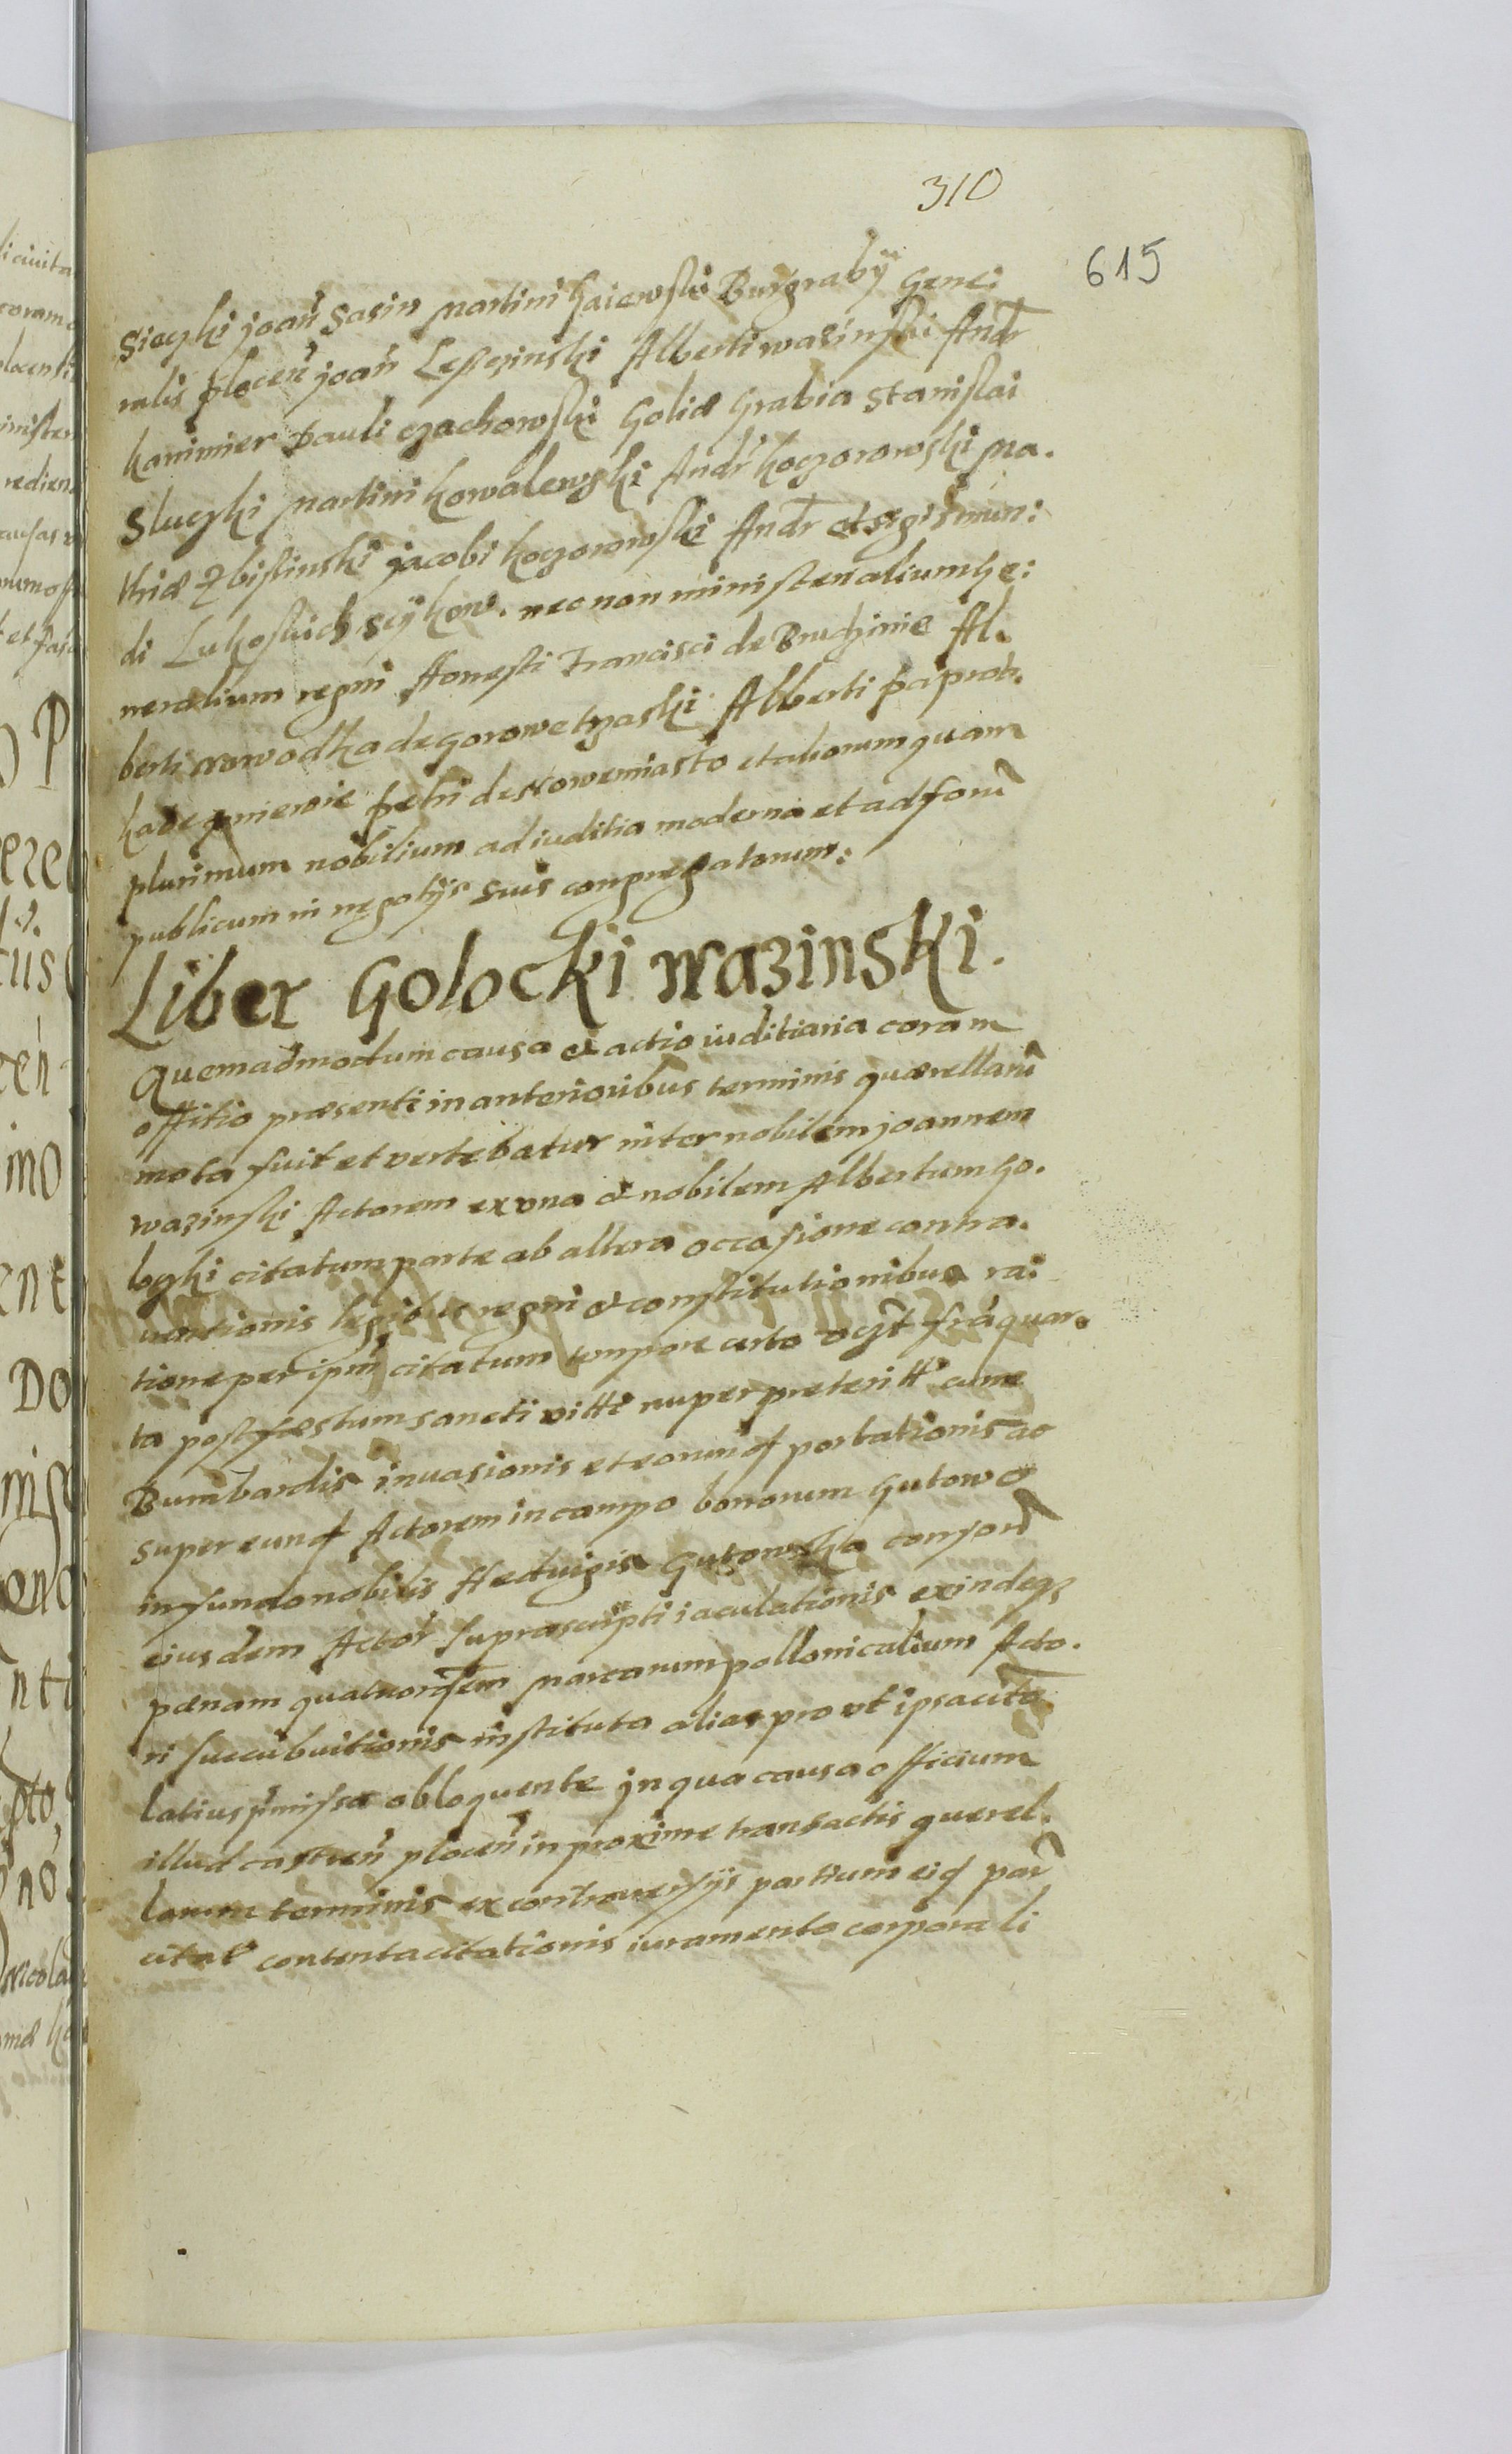 310
615
Sieczki joan̄ Sasin Martini Gaiewski Burgrabÿ gene:
ralis plocen̄ joan̄ Leszczinski Alberti wazinski Andr
kanimier pauli czachowski Goliæ Grabia Stanislai
Sluczki Martini kowalewski Andr̄ koczorowski Ma.
thiæ Zbislinski jacobi koczorowski Andr̄ et sigismun:
di Lukoskich necnon ministerialium ge:
neralium regni Honesti Francisci de Brudzinie Al.
berti de Alberti paprot.
ka de petri de Nowemiasto et aliorum quam
plurimum nobilium ad iuditia moderna et ad forū
publicum in negotÿs suis congregatorum:
Liber Golocki Wazinski.
Quemadmodum causa et actio iuditiaria coram
offitio præsenti in anterioribus terminis quærellarū
mota fuit et vertebatur inter nobilem joannem
wazinski Actorem ex una et nobilem Albertum Go.
loczki citatum parte ab altera occasione contra.
uentionis legibus regni et constitutionibus ra:
tione per ipm̄ citatum tempore certo vczt̄ fr̄a quar.
ta post fæstum sancti vitti nuper preteritti cum
Bumbardis inuasionis et eorund portationis ac
super eund Actorem in campo bonorum Gutowo
in fundo nobilis Heduigis Gutowska
eiusdem Actor̄ suprascripti iaculationis exindeqz
pænam quatuordem marcarum pollonicalium Acto.
ri succubuitionis instituta alias prout ipsa cit̄o
latius p̄missa obloquente jn qua causa officium
illud castren̄ plocen̄ in proxime transactis querel.
larum terminis ex controuersÿs partium eid par̄
citate contenta citationis iuramento corporali